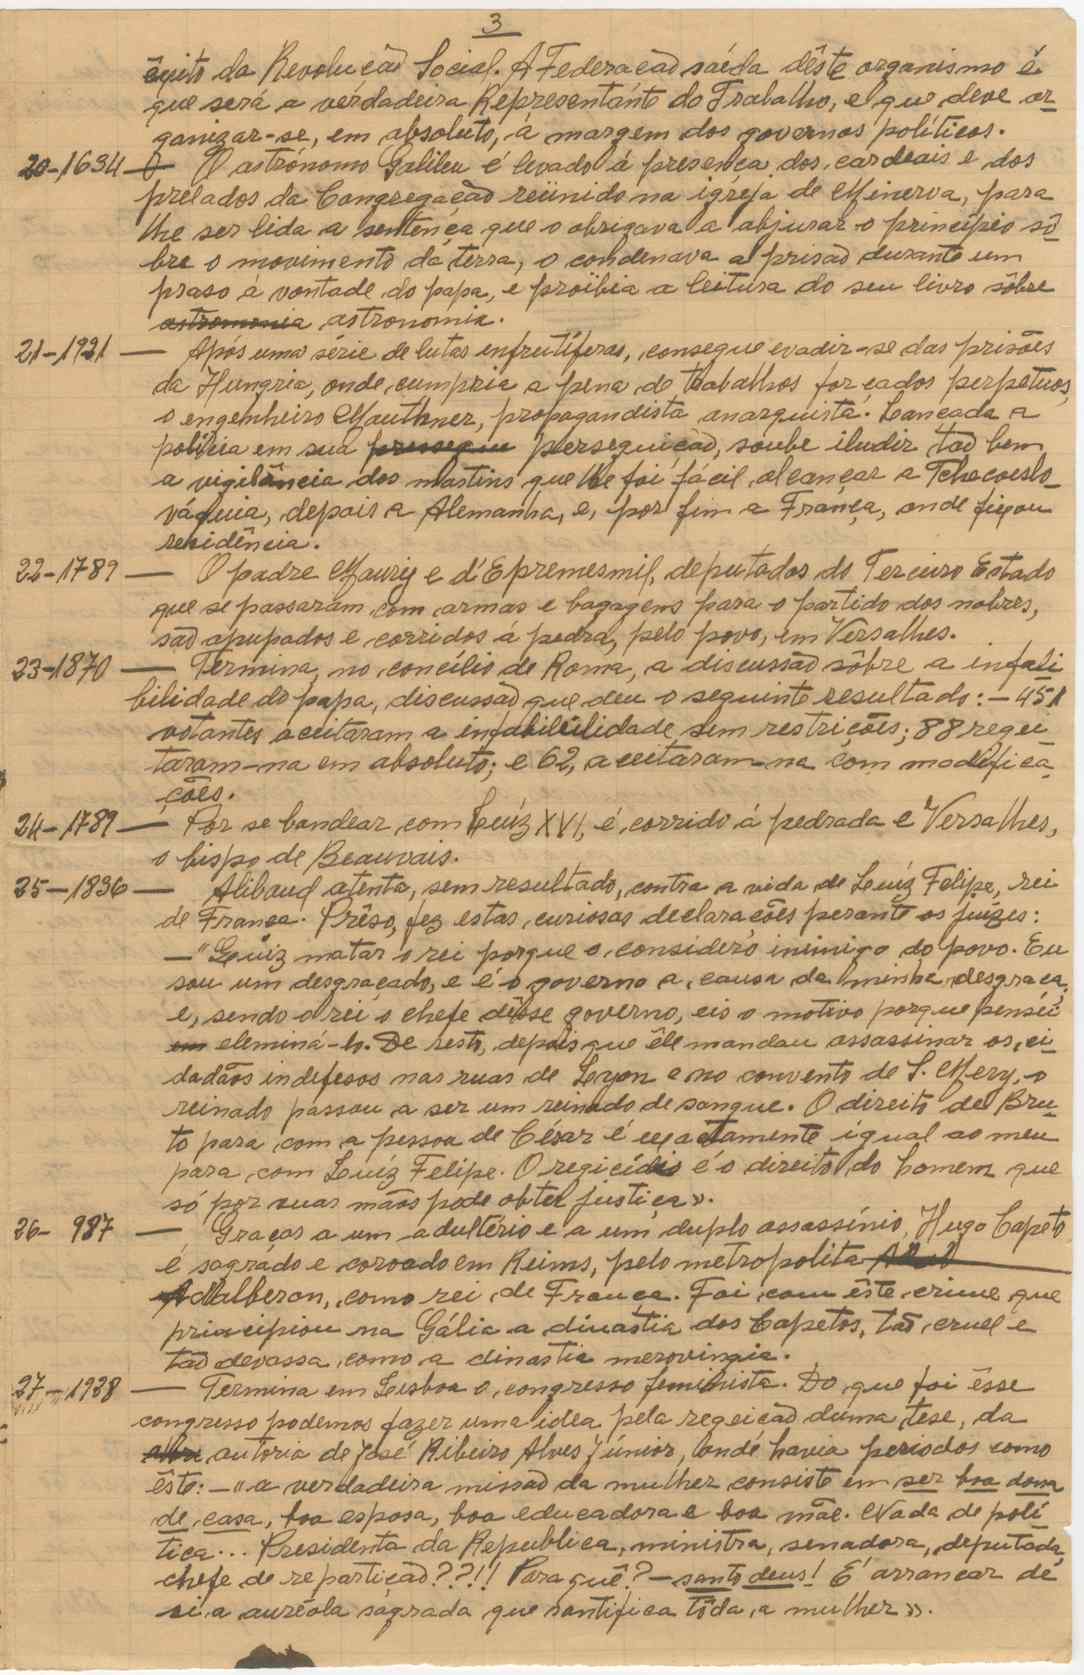 3
êxito da Revolução Social. A Federação saída dêste organismo é
que será a verdadeira Representante do Trabalho, e que deve or-
ganizar-se, em absoluto, á margem dos governos políticos.
20-1634 — O astrónomo Galileu é levado á presença dos cardeais e dos
prelados da Congregação reünido na igreja de Minerva, para
lhe ser lida a sentença que o obrigava a abjurar o princípio sô-
bre o movimento da terra, o condenava a prisão durante um
praso a vontade do papa, e proïbia a leitura do seu livro sôbre
astronomia astronomia.
21-1921 — Após uma série de lutas infrutíferas, consegue evadir-se das prisões
da Hungria, onde cumpria a pena de trabalhos forçados perpétuos,
o engenheiro Mauthner, propagandista anarquista. Lançada a
polícia em sua persegui perseguição, soube iludir tão bem
a vigilância dos mastins que lhe foi fácil alcançar a Tchecoeslo-
váquia, depois a Alemanha, e, por fim a França, onde fixou
residência.
22-1789 — O padre Maury e d'Epremesmil, deputados do Terceiro Estado
que se passaram com armas e bagagens para o partido dos nobres,
são apupados e corridos á pedra, pelo povo, em Versalhes.
23-1870 — Termina, no concílio de Roma, a discussão sôbre a infali-
bilidade do papa, discussão que deu o seguinte resultado: - 451
votantes aceitaram a infabilidade sem restrições; 88 regei-
taram-na em absoluto; e 62, aceitaram-na com modifica-
ções.
24-1789 — Por se bandear com Luíz XVI, é corrido á pedrada e Versalhes,
o bispo de Beauvais.
25-1836 — Alibaud atenta, sem resultado, contra a vida de Luíz Felipe, rei
de França. Prêso, fez estas curiosas declarações perante os juízes:
— "Quiz matar o rei porque o considero inimigo do povo. Eu
sou um desgraçado, e é o governo a causa da minha desgraça,
e, sendo o rei o chefe dêsse governo, eis o motivo porque pensei
em eleminá-lo. De resto, depois que êle mandou assassinar os ci-
dadãos indefesos nas ruas de Lyon e no convento de S. Mery, o
reinado passou a ser um reinado de sangue. O direito de Bru-
to para com a pessoa de César é exactamente igual ao meu
para com Luíz Felipe. O regicídio é o direito do homem que
só por suas mãos pode obter justiça».
26- 987 — Graças a um adultério e a um duplo assassínio, Hugo Capeto
é sagrado e coroado em Reims, pelo metropolita
Adalberon, como rei de França. Foi com êste crime que
principiou na Gália a dinastia dos Capetos, tão cruel e
tão devassa como a dinastia merovíngia.
27-1928 — Termina em Lisboa o congresso feminista. Do que foi êsse
congresso podemos fazer uma idea pela regeição duma tese, da
autoria de José Ribeiro Alves Júnior, onde havia periodos como
êste: —"a verdadeira missão da mulher consiste em ser boa dona
de casa, boa esposa, boa educadora e boa mãe. Nada de polí-
tica... Presidenta da Republica, ministra, senadora, deputada,
chefe de repartição??!! Para quê? - santo deus! É arrancar de
si a auréola sagrada que santifica tôda a mulher».